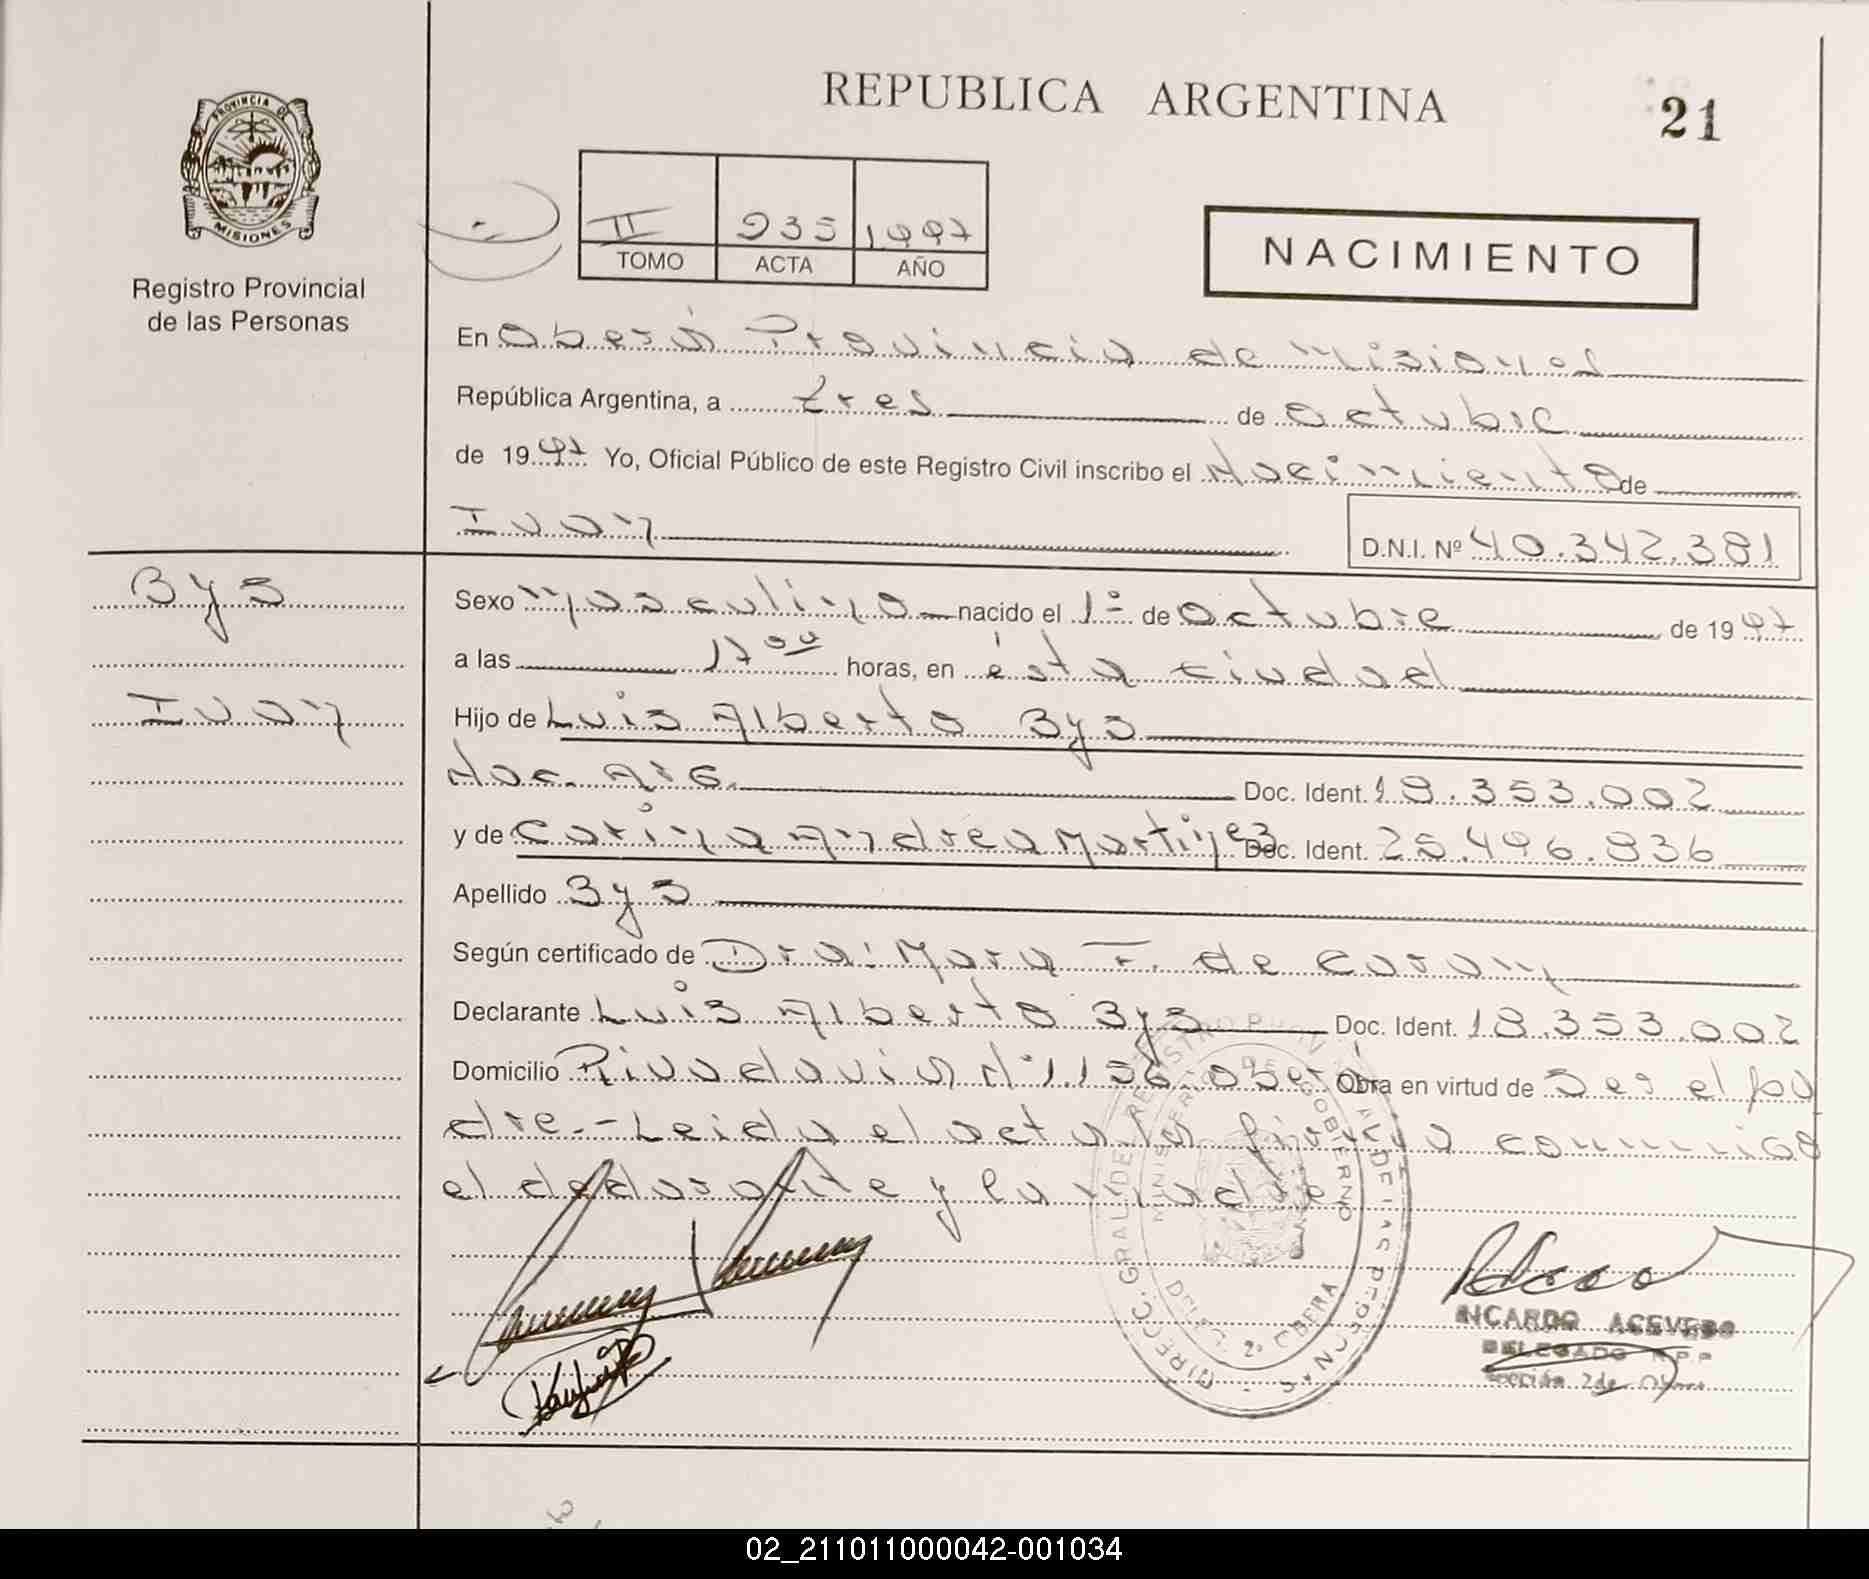 REPUBLICA ARGENTINA
21
PROVINCIA DE
MISIONES
Registro Provincial
de las Personas
II 935 1997
TOMO ACTA AÑO
NACIMIENTO
En Oberá Provincia de Misiones
República Argentina, a tres de octubre
de 1997 Yo, Oficial Público de este Registro Civil inscribo el Nacimiento de
Ivan
D.N.I. Nº 40.342.381
Bys
Ivan
Sexo masculino nacido el 1º de octubre de 1997
a las 17 00 horas, en ésta ciudad
Hijo de Luis Alberto Bys
Nac. Arg. Doc. Ident. 18.353.002
y de Carina Andrea Martinez Doc. Ident. 25.496.836
Apellido Bys
Según certificado de Dra: Mara F. de
Declarante Luis Alberto Bys Doc. Ident. 18.353.002
Domicilio Rivadavia Nº 1.156 Oberá Obra en virtud de ser el pa
dre.- Leida el acta la firma conmigo
el declarante y la madre
DIRECC. GRAL. DE REGISTRO PROV. DE LAS PERSONAS
MINISTERIO DE GOBIERNO
DELEG. 2º OBERA
RICARDO ACEVEDO
DELEGADO R.P.P
Sección 2da Obera
02_211011000042-001034